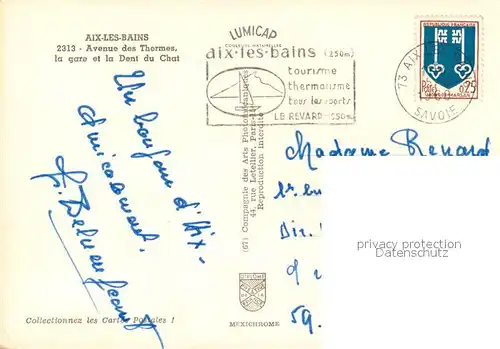 AIX-LES-BAINS
2313 - Avenue des Thermes,
la gare et la Dent du Chat
LUMICAP
COULEURS NATURELLES
aix-les-bains (250m)
tourisme
thermalisme
tous les sports
LE REVARD 1550m
REPUBLIQUE FRANÇAISE
Postes 0,25
MONT-DE-MARSAN
73 AIX
SAVOIE
Un bonjour d'Aix.
Amicalement.
(67) Compagnie des Arts Photomécaniques
44, rue Letellier, Paris-15
Reproduction interdite
Madame Renard
59.
Privatsphäre
Datenschutz
MEXICHROME
Collectionnez les Cartes Postales !